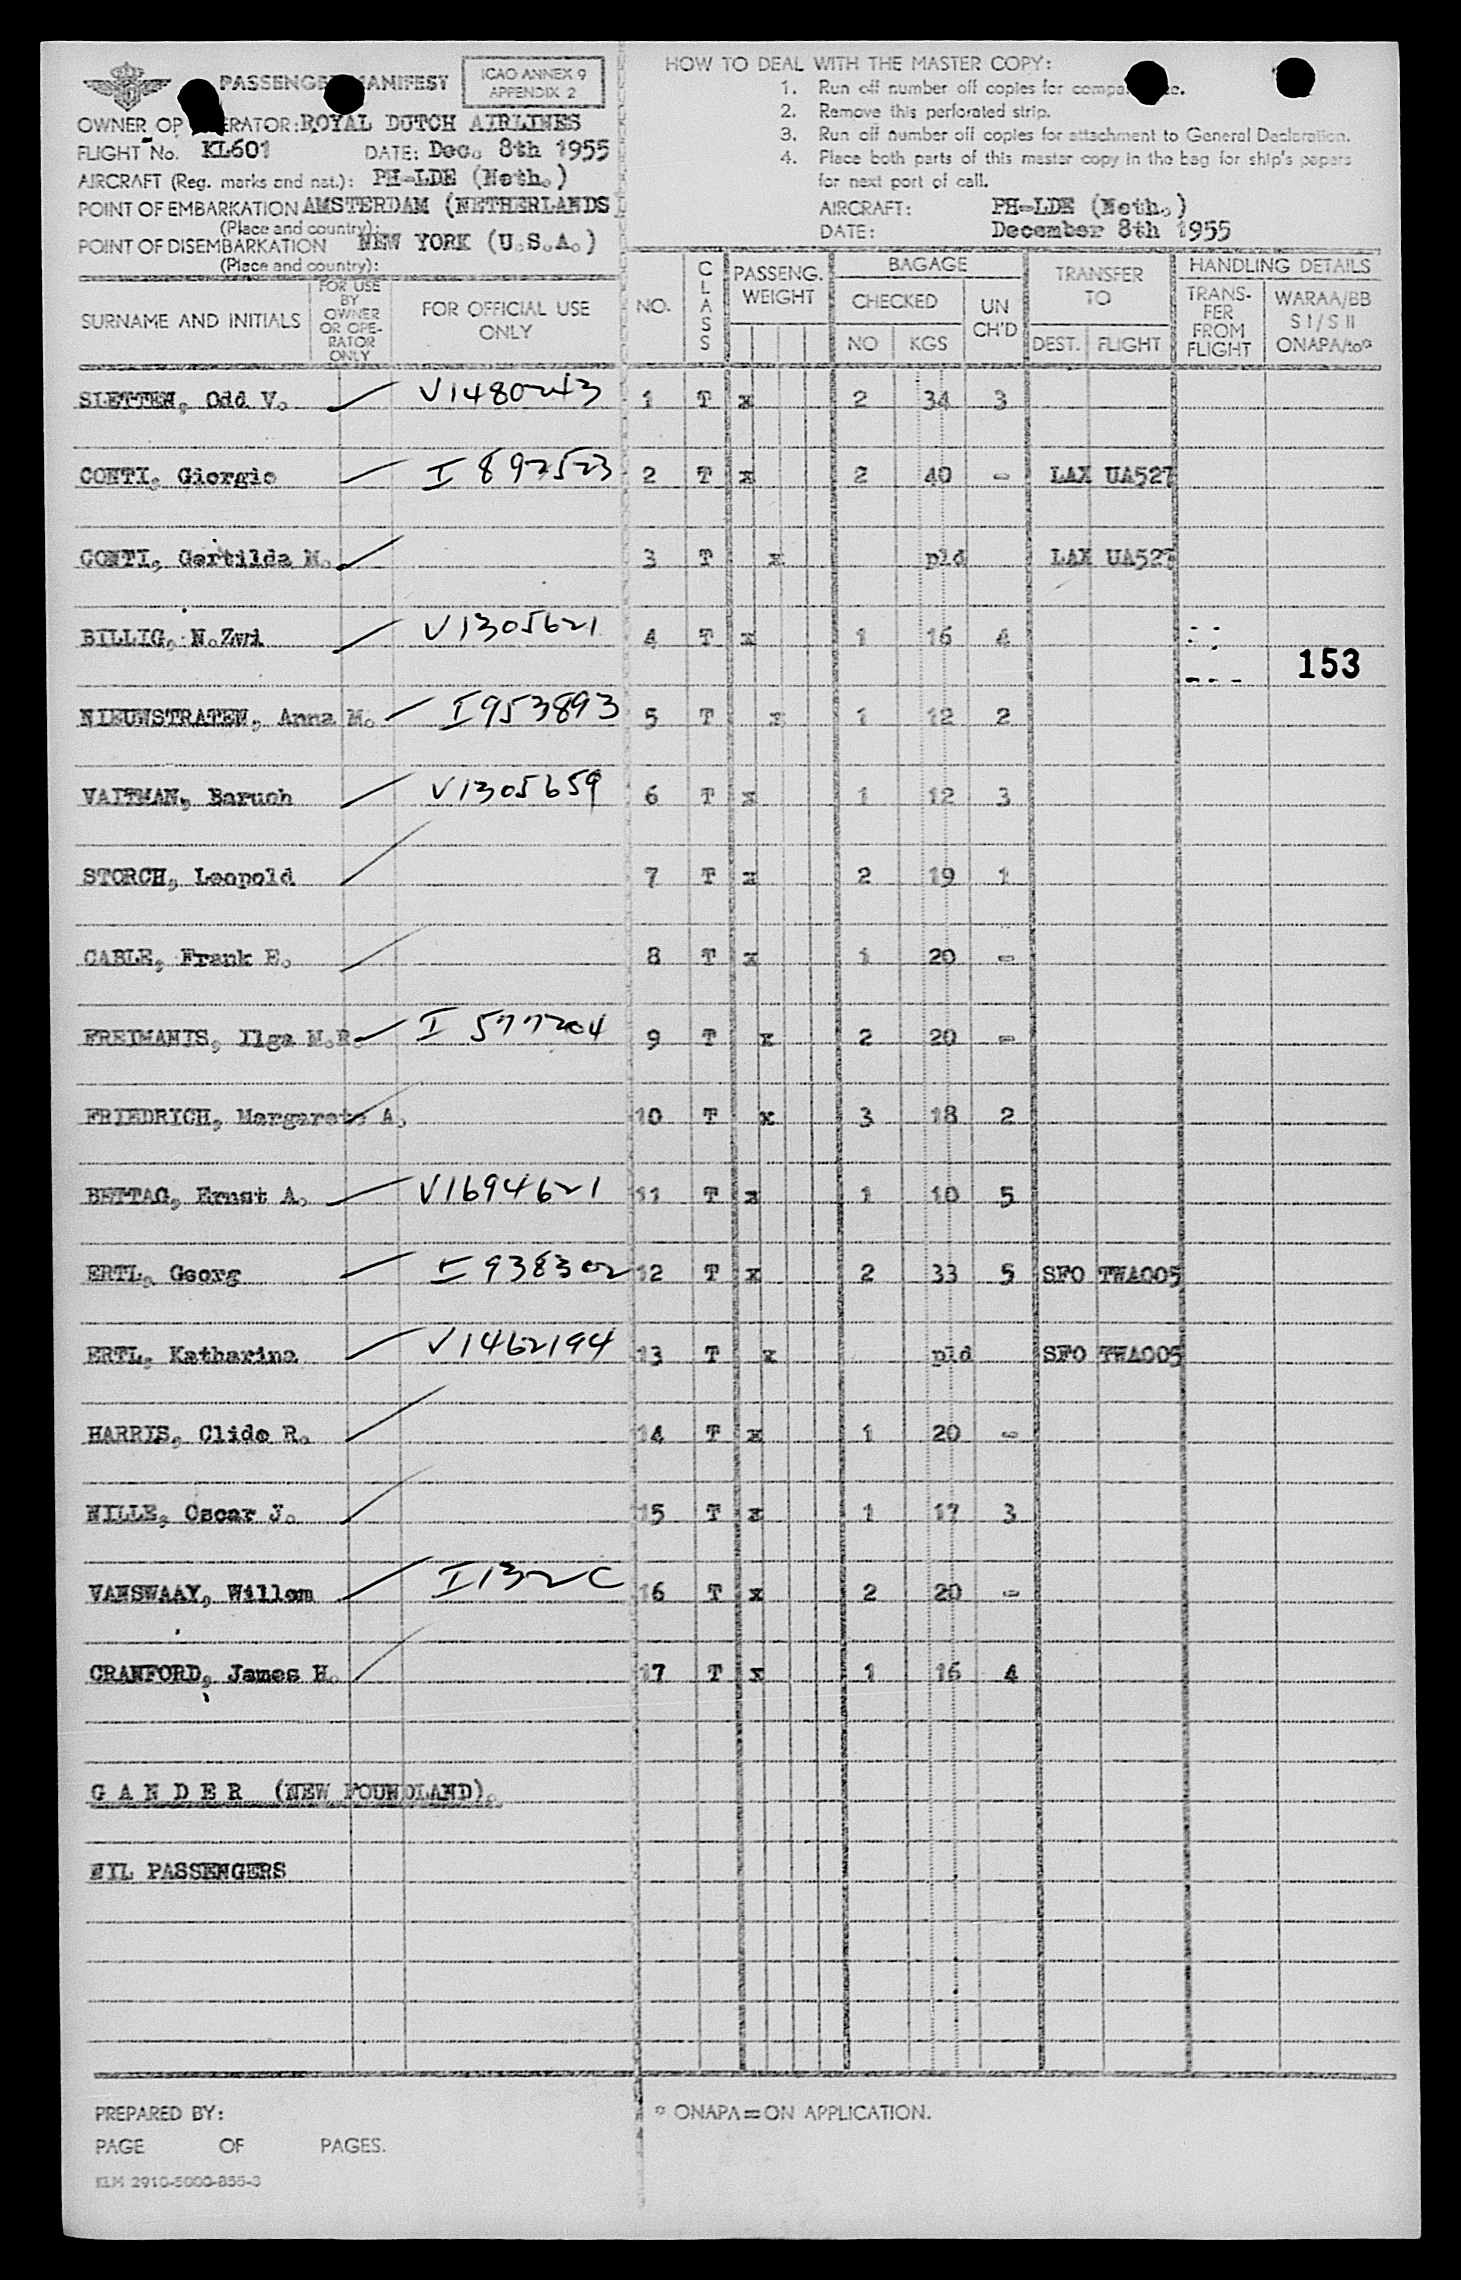 PASSENGER MANIFEST
ICAO ANNEX 9
APPENDIX 2
OWNER OP ERATOR: ROYAL DUTCH AIRLINES
FLIGHT No. KL601 DATE: Dec. 8th 1955
AIRCRAFT (Reg. marks and nat.): PH-LDE (Neth.)
POINT OF EMBARKATION AMSTERDAM (NETHERLANDS)
(Place and country):
POINT OF DISEMBARKATION NEW YORK (U.S.A.)
(Place and country):
HOW TO DEAL WITH THE MASTER COPY:
1. Run off number off copies for
2. Remove this perforated strip.
3. Run off number off copies for attachment to General Declaration.
4. Place both parts of this master copy in the bag for ship's papers
for next port of call.
AIRCRAFT: PH-LDE (Neth.)
DATE: December 8th 1955
SURNAME AND INITIALS
FOR USE
BY
OWNER
OR OPE-
RATOR
ONLY
FOR OFFICIAL USE
ONLY
NO.
CLASS
PASSENG.
WEIGHT
BAGAGE
CHECKED
NO KGS
UN
CH'D
TRANSFER
TO
DEST. FLIGHT
HANDLING DETAILS
TRANS-
FER
FROM
FLIGHT
WARAA/BB
S I / S II
ONAPA/to*
SLETTEN, Odd V. V1480243 1 T x 2 34 3
CONTI, Giorgio I 892523 2 T x 2 40 - LAX UA527
CONTI, Gertilda M. 3 T x pld LAX UA527
BILLIG, N.Zvi V1305621 4 T x 1 16 4
153
NIEUWSTRATEN, Anna M. I953893 5 T x 1 12 2
VAITMAN, Baruch V1305659 6 T x 1 12 3
STORCH, Leopold 7 T x 2 19 1
CABLE, Frank E. 8 T x 1 20 -
FREIMANIS, Ilga M.R. I 577204 9 T x 2 20 -
FRIEDRICH, Margarete A. 10 T x 3 18 2
BETTAG, Ernst A. V1694621 11 T x 1 10 5
ERTL, Georg I 938302 12 T x 2 33 5 SFO TWA005
ERTL, Katharina V1462194 13 T x pld SFO TWA005
HARRIS, Clide R. 14 T x 1 20 -
NILLE, Oscar J. 15 T x 1 17 3
VANSWAAY, Willem I132C 16 T x 2 20 -
CRANFORD, James H. 17 T x 1 16 4
G A N D E R (NEW FOUNDLAND).
NIL PASSENGERS
PREPARED BY:
PAGE OF PAGES.
KLM 2910-5000-855-3
* ONAPA=ON APPLICATION.